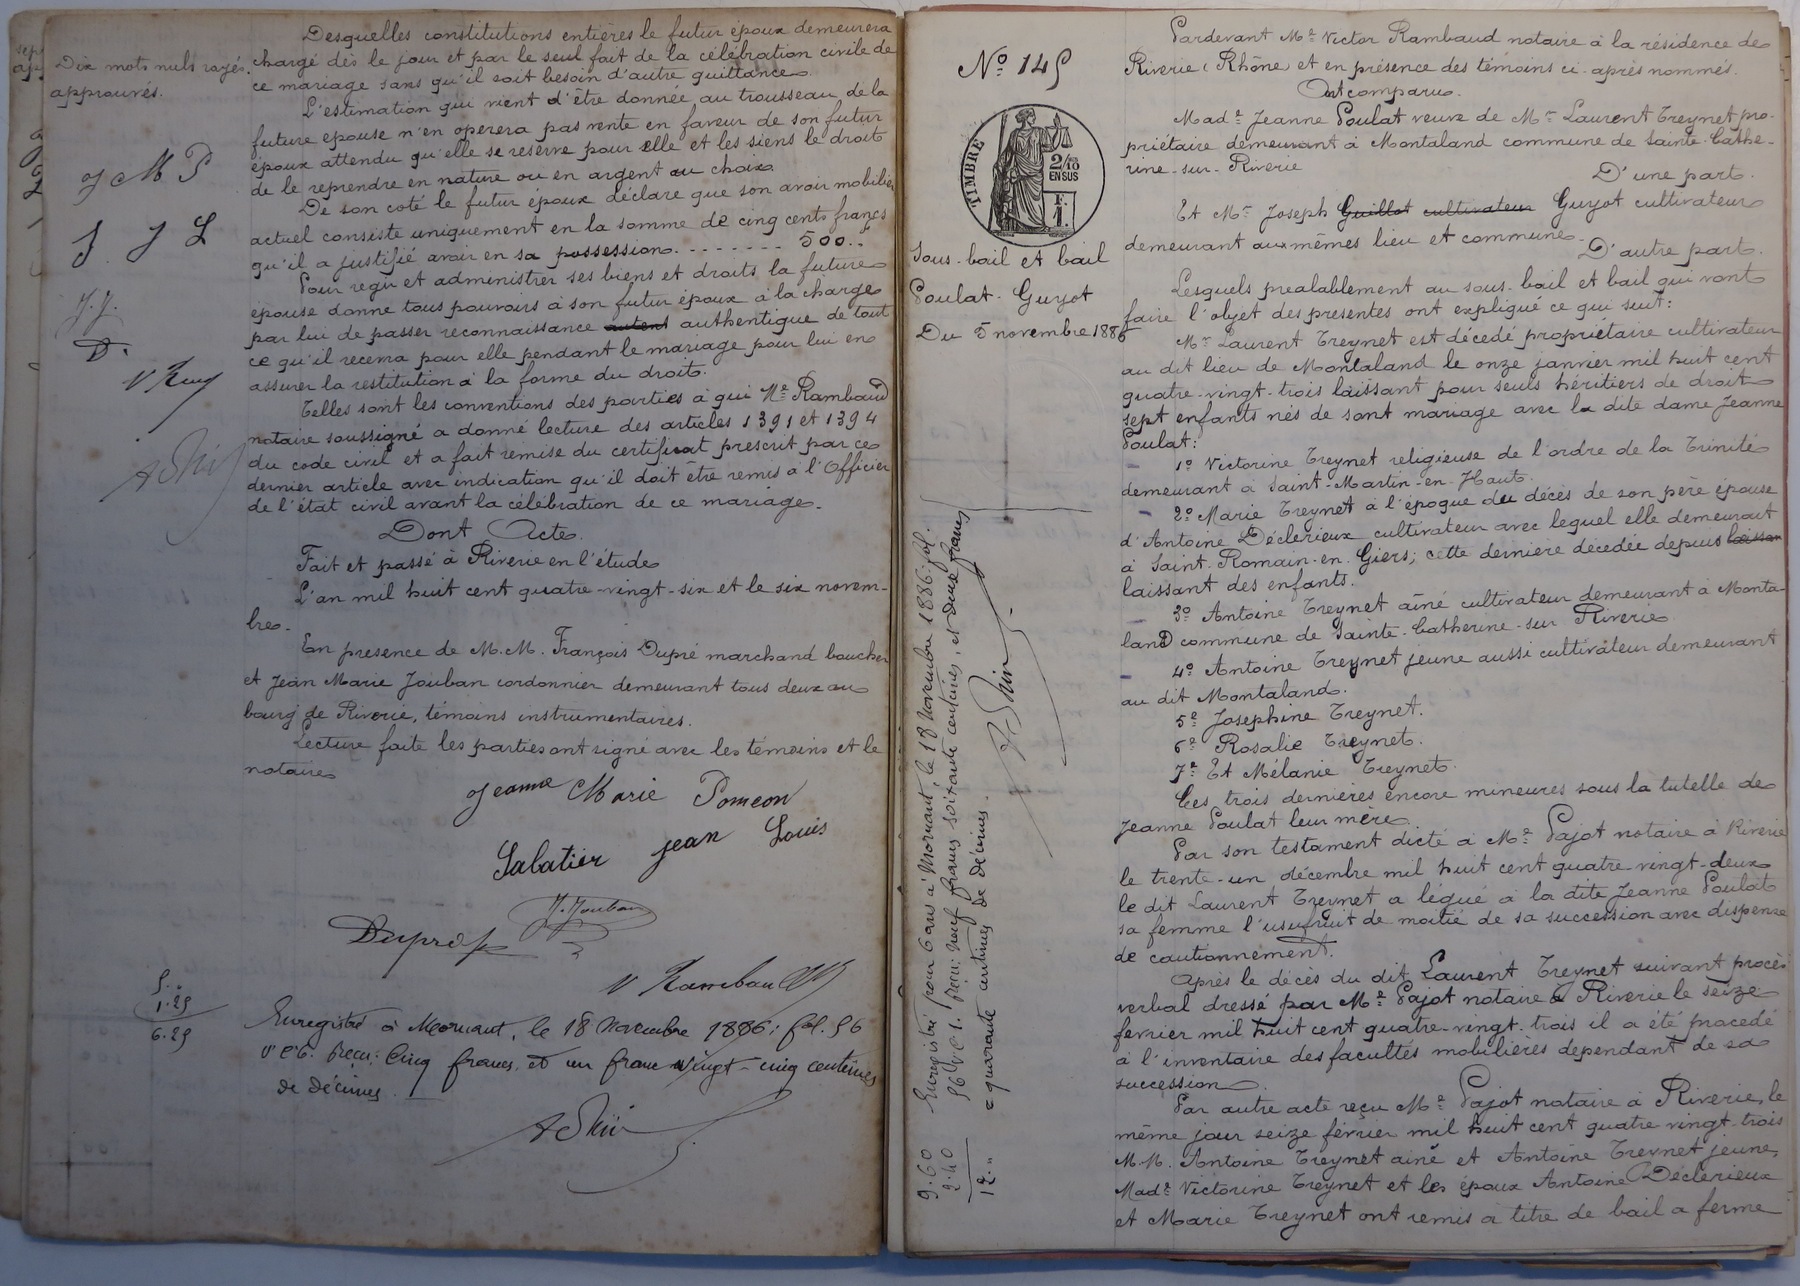 Dix mots nuls rayés.
approuvés.
J M P
S J L
J. J.
D.
Desquelles constitutions entières le futur époux demeurera
chargé dès le jour et par le seul fait de la célébration civile de
ce mariage sans qu'il soit besoin d'autre quittance.
L'estimation qui vient d'être donnée au trousseau de la
future épouse n'en operera pas vente en faveur de son futur
époux attendu qu'elle se réserve pour elle et les siens le droit
de le reprendre en nature ou en argent au choix
De son coté le futur époux déclare que son avoir mobilier
actuel consiste uniquement en la somme de cinq cents francs
qu'il a justifié avoir en sa possession. - - - - - - - - 500..f
Pour regir et administrer ses biens et droits la future
épouse donne tous pouvoirs à son futur époux à la charge
par lui de passer reconnaissance autent authentique de tout
ce qu'il recevra pour elle pendant le mariage pour lui en
assurer la restitution à la forme du droit.
Telles sont les conventions des parties à qui Me Rambaud
notaire soussigné a donné lecture des articles 1391 et 1394
du code civil et a fait remise du certificat prescrit par ce
dernier article avec indication qu'il doit être remis à l'Officier
de l'état civil avant la célébration de ce mariage.
Dont Acte.
Fait et passé à Riverie en l'étude
L'an mil huit cent quatre-vingt-six et le six novem-
bre.
En presence de M.M. François Dupré marchand boucher
et Jean Marie Jouban cordonnier demeurant tous deux au
bourg de Riverie, témoins instrumentaires.
Lecture faite les parties ont signé avec les témoins et le
notaire
Jeanne Marie Pomeon
Sabatier jean Louis
J. Jouban
Dupré f
V Rambaud
5..
1.25
6.25
Enregistré à Mornant, le 18 Novembre 1886; fol. 56
v° c 6. Reçu: Cinq francs, et un franc vingt-cinq centimes
de décimes.
No 145
TIMBRE
2/10
EN SUS
F.
1.
Sous-bail et bail
Poulat-Guyot
Du 5 novembre 1886
Enregistré pour 6 ans à Mornant, le 18 Novembre 1886: fol.
56 v° c 1. Reçu: neuf francs soixante centimes, et deux francs
quarante centimes de décimes.
9.60
2.40
12."
Pardevant Me Victor Rambaud notaire à la résidence de
Riverie (Rhône) et en présence des témoins ci-après nommés.
Ont comparu.
Made Jeanne Poulat veuve de Mr Laurent Treynet pro-
priétaire demeurant à Montaland commune de Sainte-Cathe-
rine-sur-Riverie
D'une part.
Et Mr Joseph Guillot cultivateur Guyot cultivateur
demeurant aux mêmes lieu et commune.
D'autre part.
Lesquels prealablement au sous-bail et bail qui vont
faire l'objet des presentes ont expliqué ce qui suit:
Mr Laurent Treynet est décédé propriétaire cultivateur
au dit lieu de Montaland le onze janvier mil huit cent
quatre-vingt-trois laissant pour seuls héritiers de droit
sept enfants nés de sont mariage avec la dite dame Jeanne
Poulat:
1o Victorine Treynet religieuse de l'ordre de la Trinité
demeurant à Saint-Martin-en-Haut.
2o Marie Treynet à l'époque du décès de son père épouse
d'Antoine Déclérieux cultivateur avec lequel elle demeurait
à Saint-Romain-en-Giers; cette dernière décédée depuis laissan
laissant des enfants.
3o Antoine Treynet aîné cultivateur demeurant à Monta-
land commune de Sainte-Catherine-sur Riverie.
4o Antoine Treynet jeune aussi cultivateur demeurant
au dit Montaland.
5o Josephine Treynet.
6o Rosalie Treynet.
7o Et Mélanie Treynet.
Ces trois dernières encore mineures sous la tutelle de
Jeanne Poulat leur mère.
Par son testament dicté à Me Pajot notaire à Riverie
le trente-un décembre mil huit cent quatre vingt-deux
le dit Laurent Treynet a légué à la dite Jeanne Poulat
sa femme l'usufruit de moitié de sa succession avec dispense
de cautionnement.
Après le décès du dit Laurent Treynet suivant procès
verbal dressé par Me Pajot notaire à Riverie le seize
février mil huit cent quatre-vingt-trois il a été procedé
à l'inventaire des facultés mobilières dependant de sa
succession.
Par autre acte reçu Me Pajot notaire à Riverie, le
même jour seize février mil huit cent quatre vingt-trois
M.M. Antoine Treynet ainé et Antoine Treynet jeune,
Made Victorine Treynet et les époux Antoine Déclérieux
et Marie Treynet ont remis à titre de bail a ferme